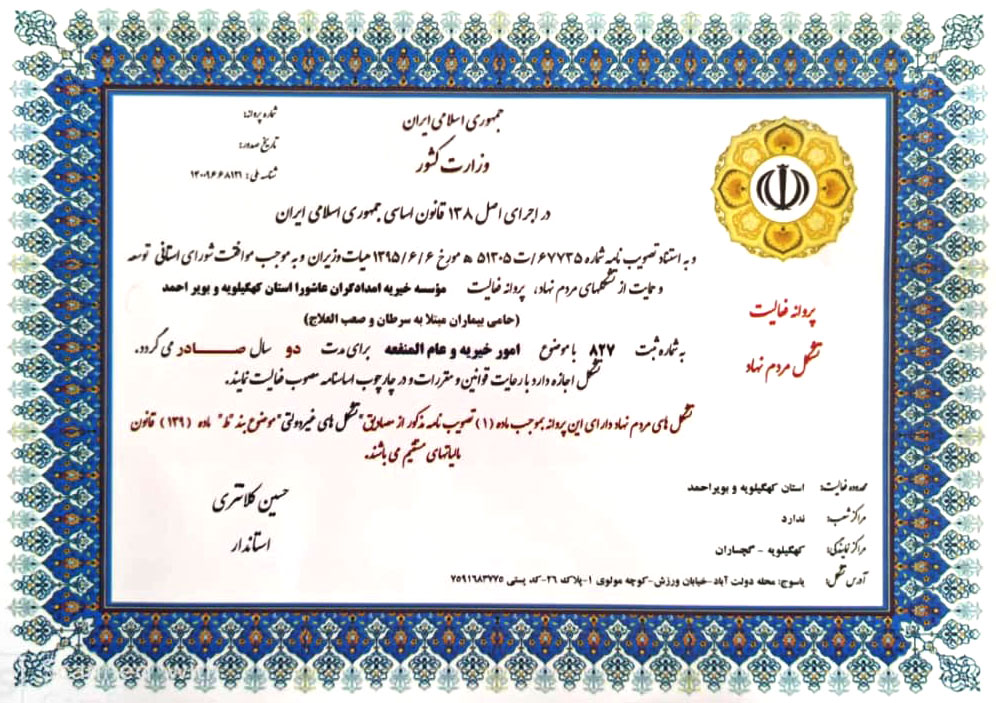 جمهوری اسلامی ایران
وزارت کشور
شماره پروانه:
تاریخ صدور:
شناسه ملی: ۱۴۰۰۹۶۶۸۱۳۱
در اجرای اصل ۱۳۸ قانون اساسی جمهوری اسلامی ایران
و به استناد تصویب نامه شماره ۶۷۷۳۵/ت ۵۱۳۰۵ ه مورخ ۱۳۹۵/۶/۶ هیات وزیران و به موجب موافقت شورای استانی توسعه
و حمایت از تشکلهای مردم نهاد، پروانه فعالیت مؤسسه خیریه امدادگران عاشورا استان کهگیلویه و بویر احمد
(حامی بیماران مبتلا به سرطان و صعب العلاج)
به شماره ثبت ۸۲۷ با موضوع امور خیریه و عام المنفعه برای مدت دو سال صادر می گردد.
تشکل اجازه دارد با رعایت قوانین و مقررات و در چارچوب اساسنامه مصوب فعالیت نمایند.
پروانه فعالیت
تشکل مردم نهاد
تشکل های مردم نهاد دارای این پروانه بموجب ماده (۱) تصویب نامه مذکور از مصادیق "تشکل های غیردولتی" موضوع بند "ط" ماده (۱۳۹) قانون
مالیاتهای مستقیم می باشند.
حسین کلانتری
استاندار
محدوده فعالیت: استان کهگیلویه و بویراحمد
مراکز شعب: ندارد
مراکز نمایندگی: کهگیلویه - گچساران
آدرس تشکل: یاسوج: محله دولت آباد-خیابان ورزش-کوچه مولوی ۱-پلاک ۲۶-کد پستی ۷۵۹۱۶۸۳۷۷۵